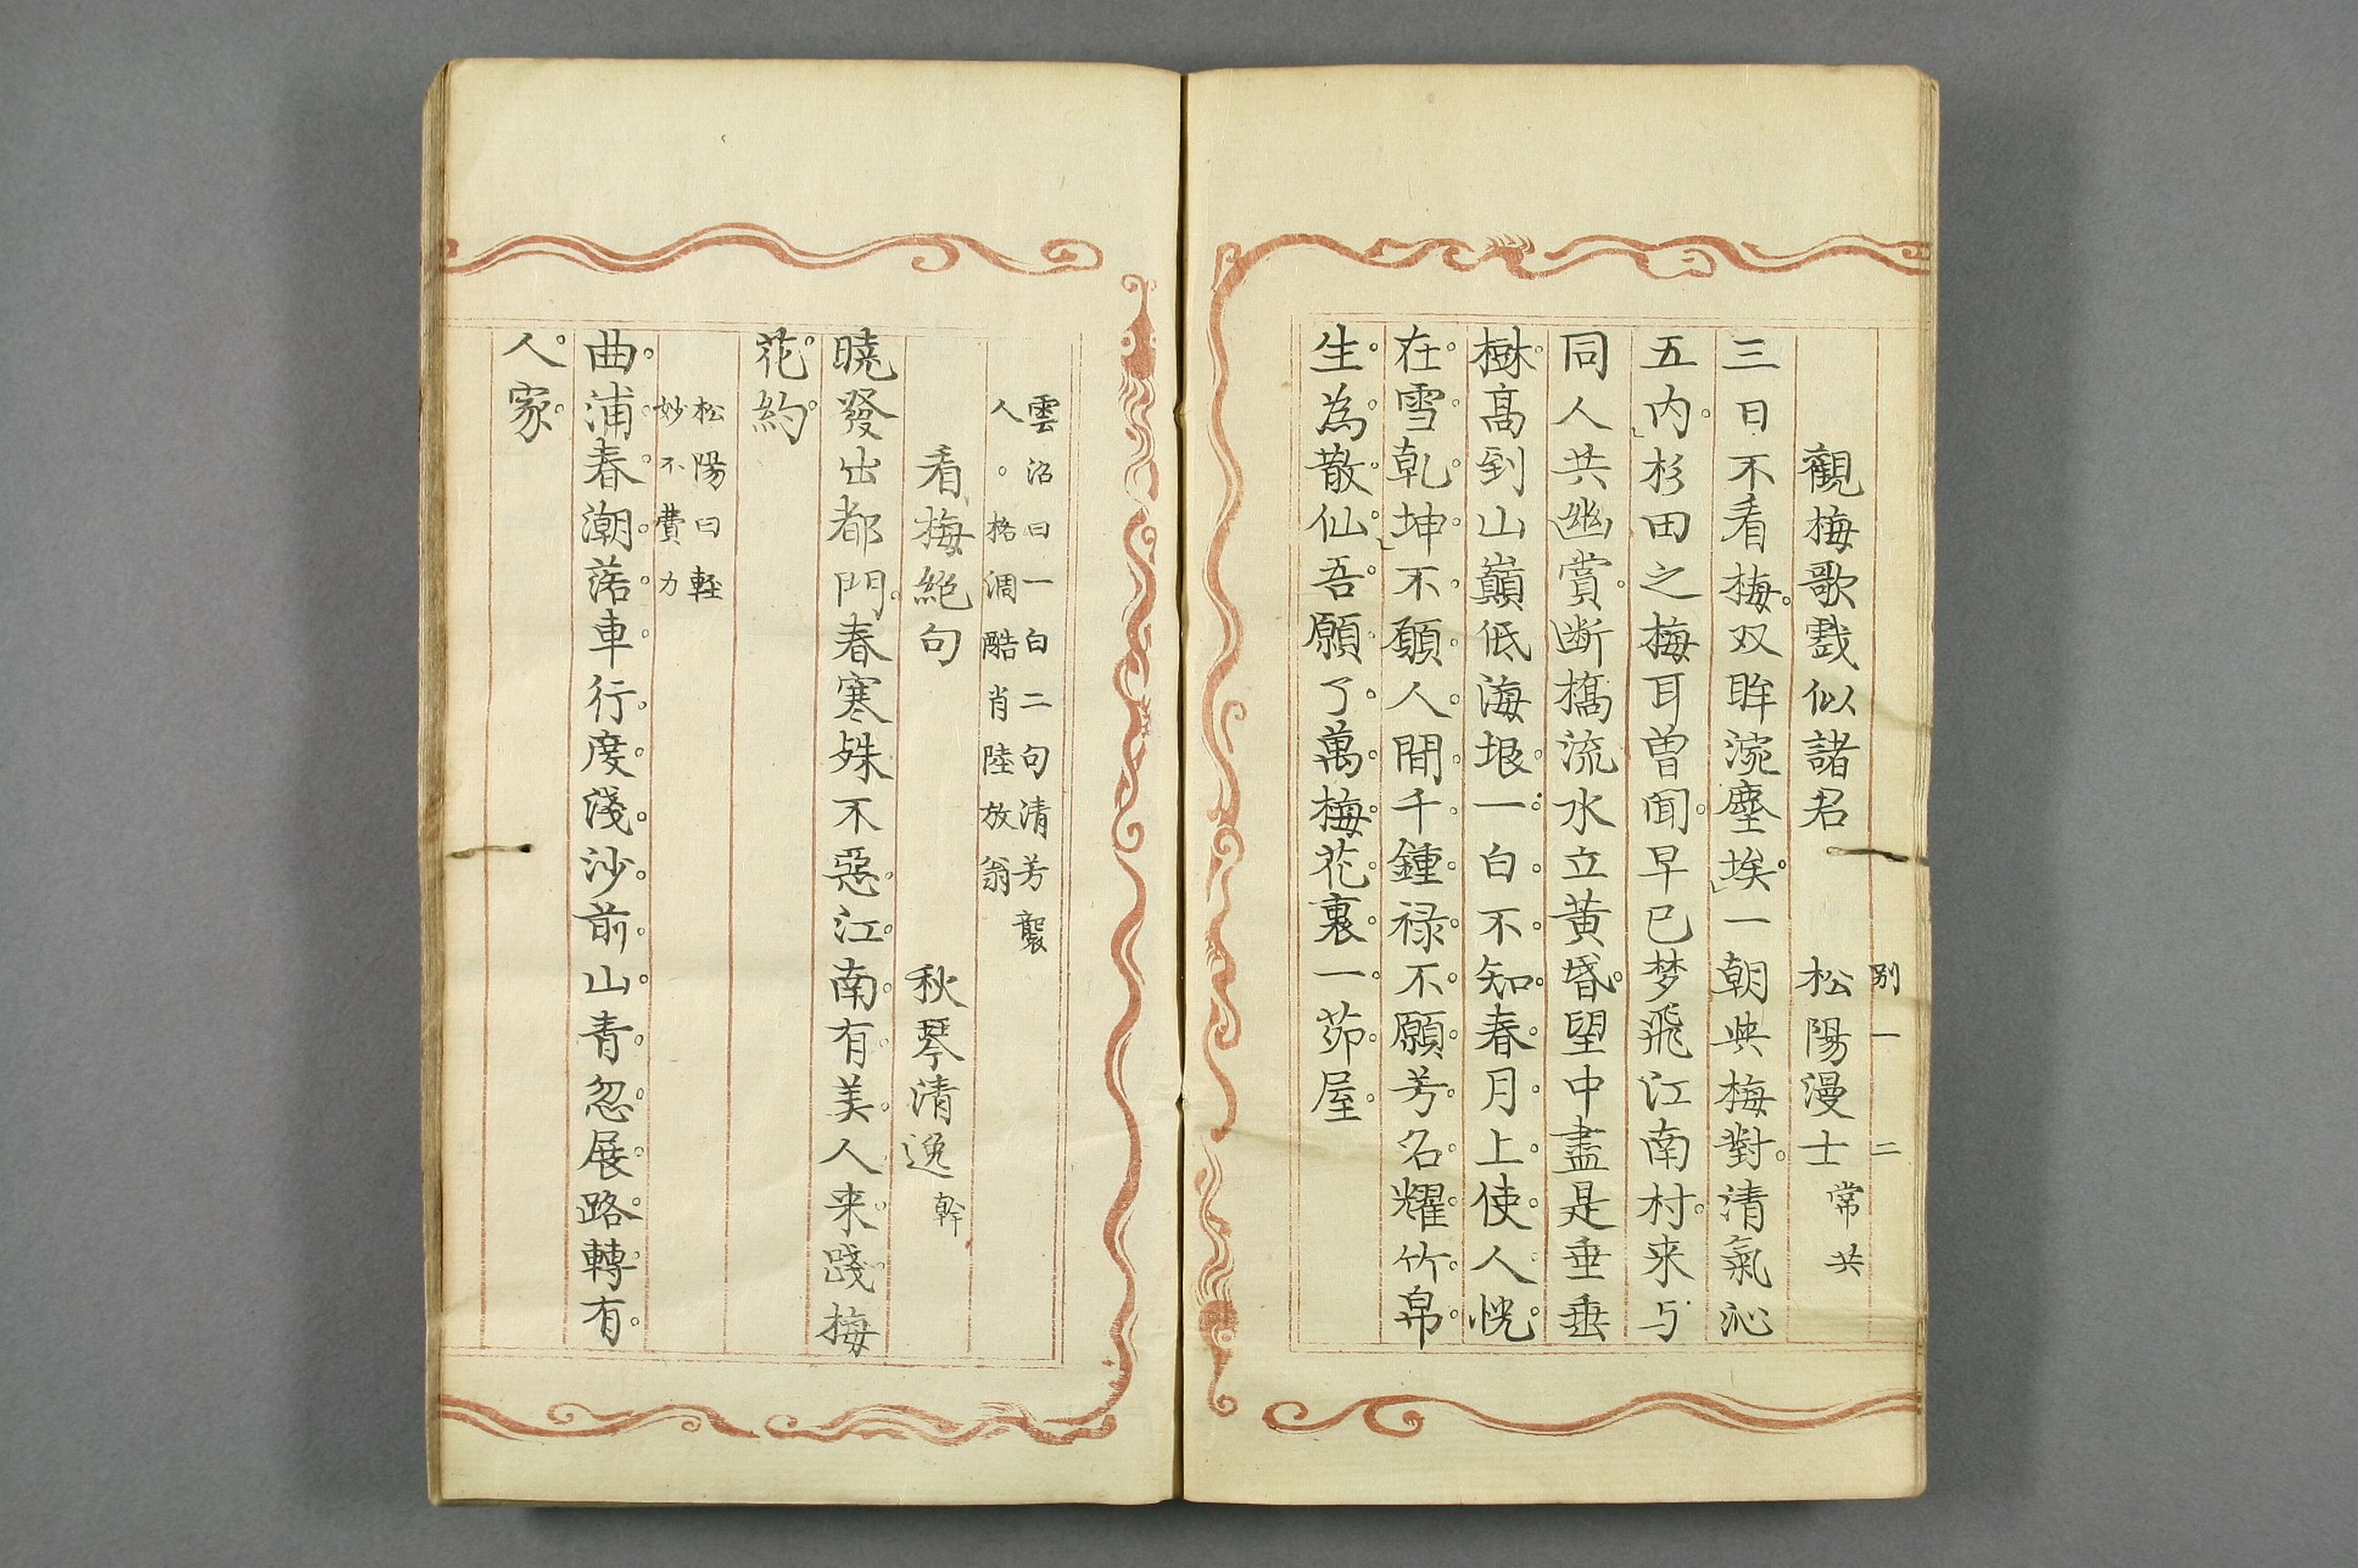 別一　二
觀梅歌戯似諸君　松陽漫士常共
三日不看梅。双眸涴塵埃。一朝與梅對。清氣沁
五内。杉田之梅耳曽聞。早已梦飛江南村。来与
同人共幽賞。断橋流水立黄昏。望中盡是垂垂
楙高到山巓低海垠。一白不知春月上。使人恍
在雪乾坤。不願人間千鍾禄。不願芳名耀竹帛。
生為散仙吾願了。萬梅花裏一茆屋。
雲沼曰一白二句清芳襲
人。格調酷肖陸放翁
看梅絶句　秋琴清逸幹
曉發出都門。春寒殊不惡。江南有美人。来踐梅
花約。
松陽曰輕
妙不費力
曲浦春潮落。車行度淺沙。前山青忽展。路轉有
人家。